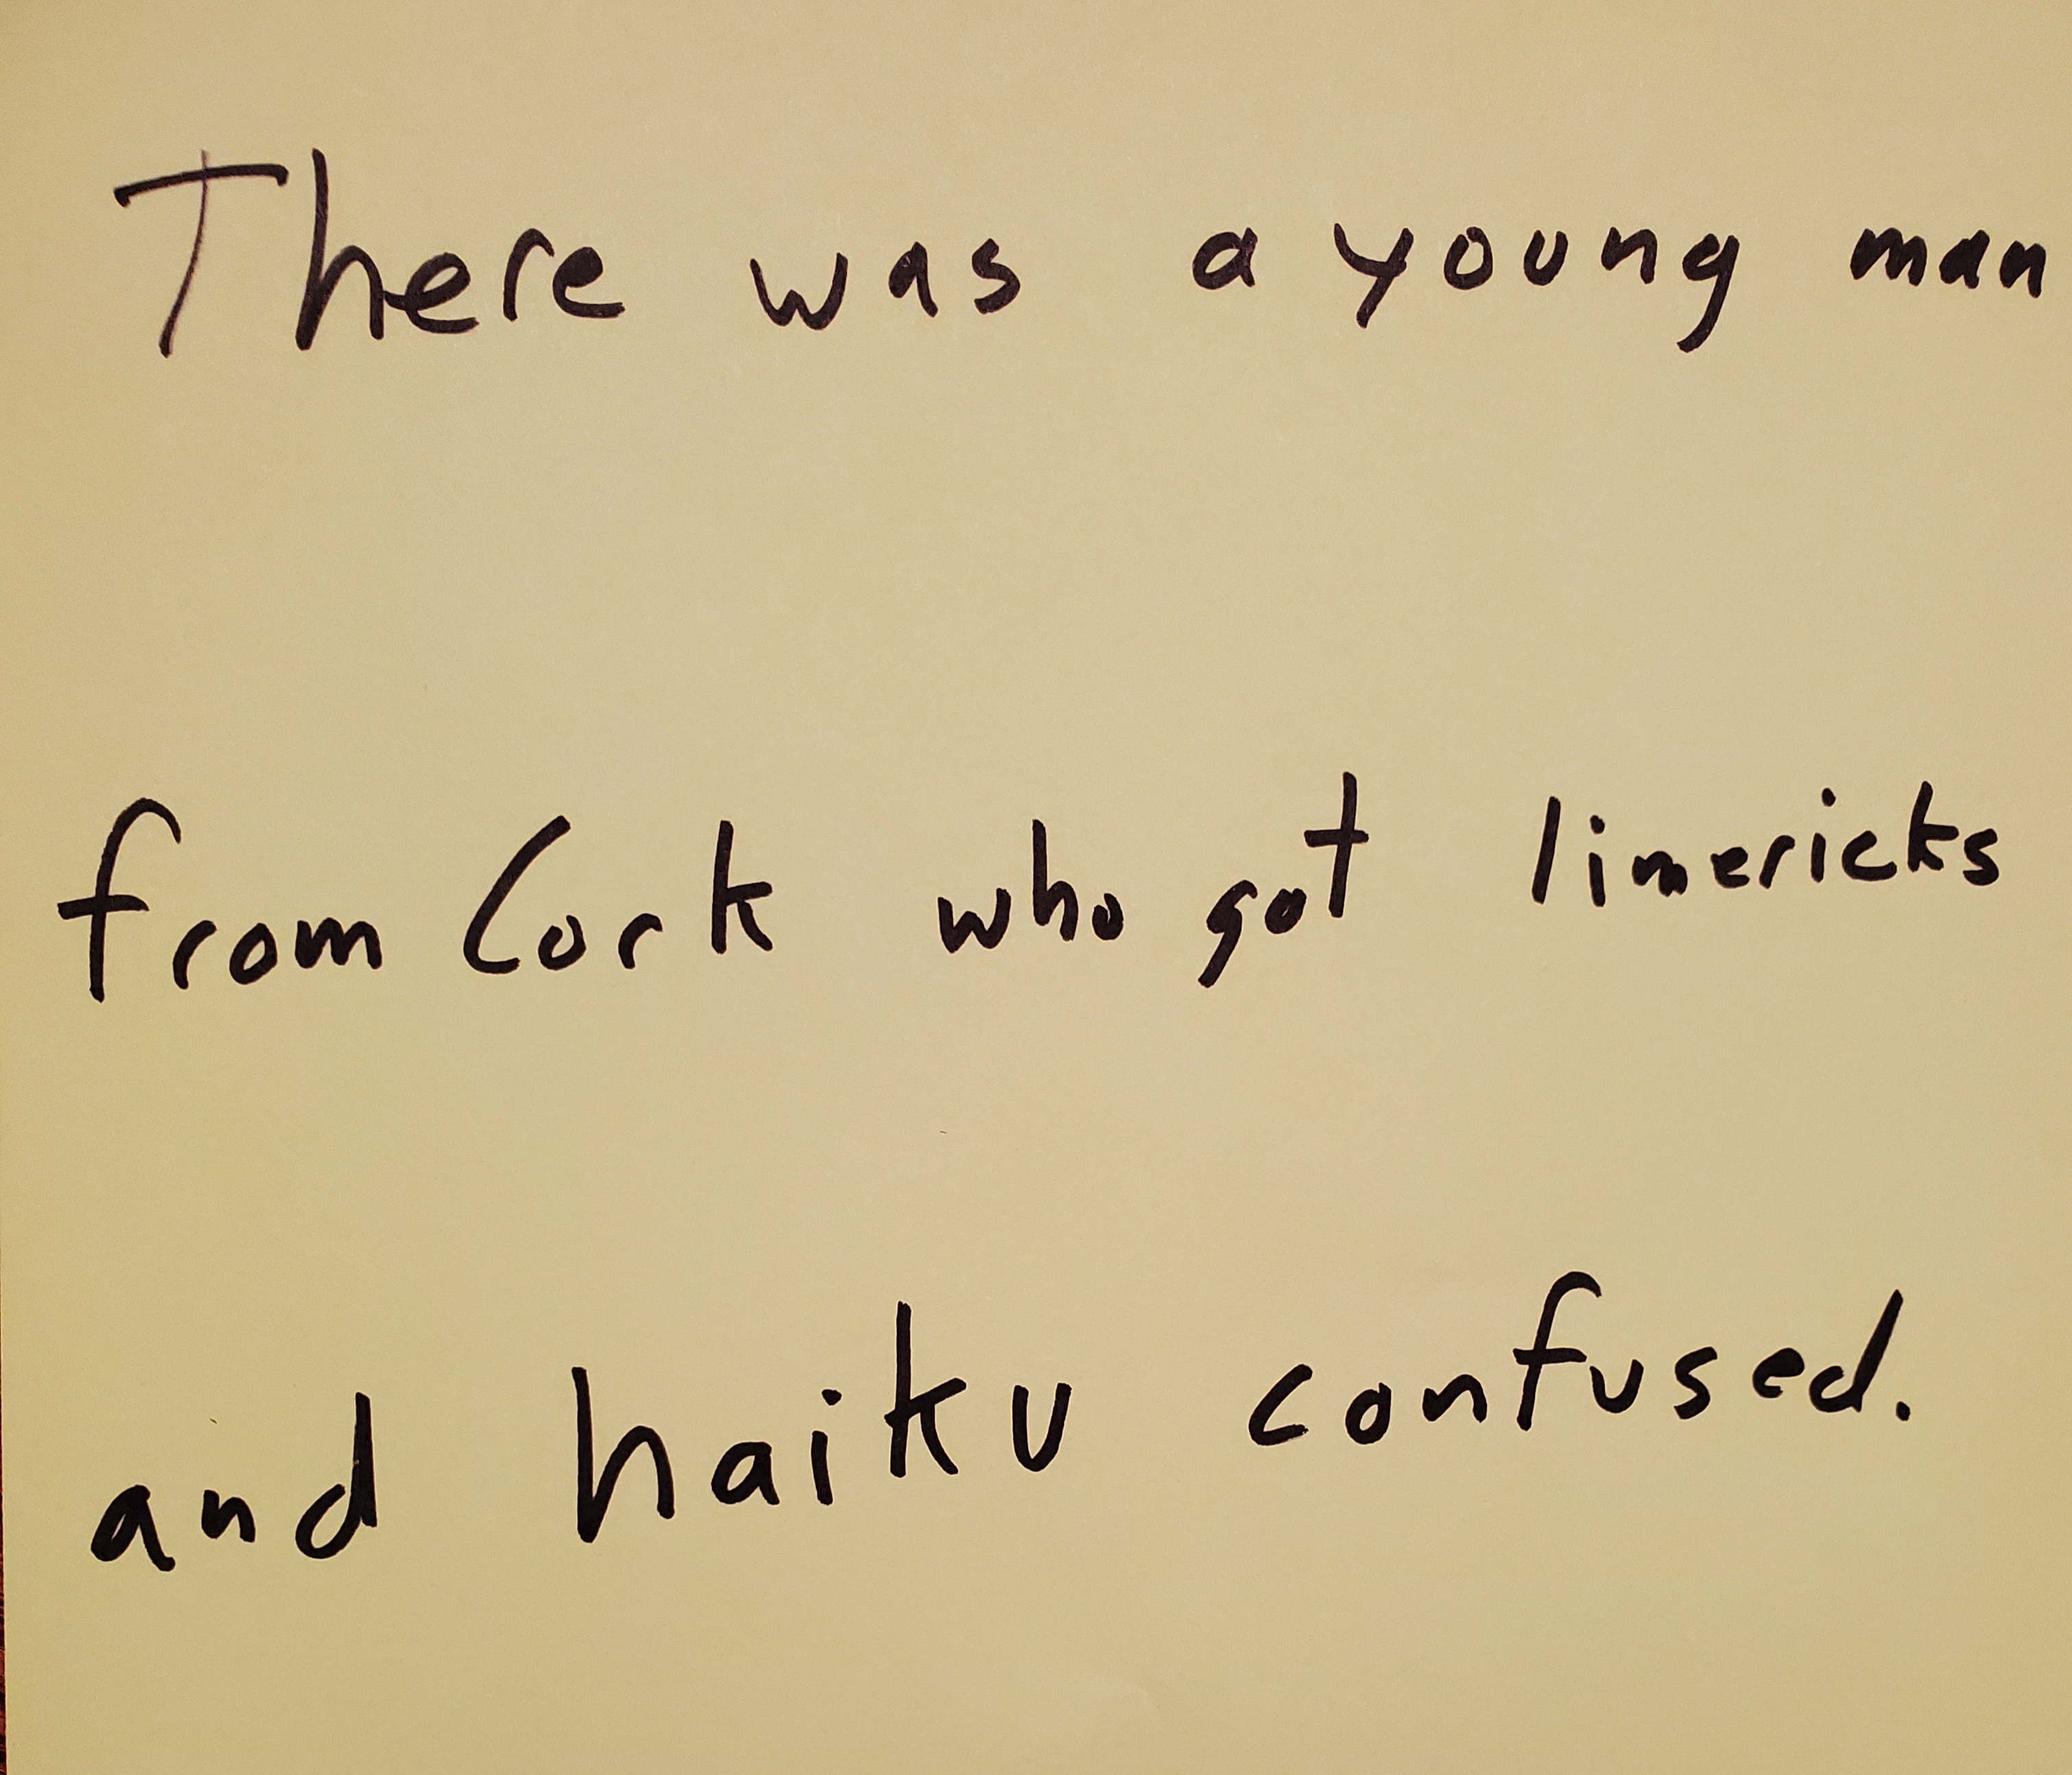 There was a young man
from Cork who got limericks
and haiku confused.